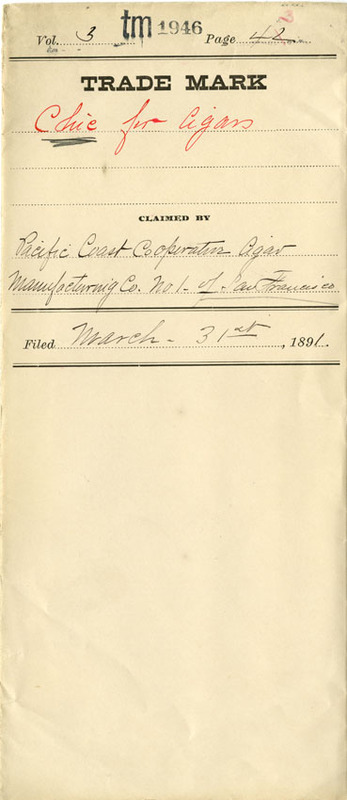 Vol. 3 tm 1946 Page 42
TRADE MARK
Chic for Cigars
CLAIMED BY
Pacific Coast Cooperative Cigar
Manufacturing Co. No 1 - of San Francisco
Filed March - 31st, 1891.